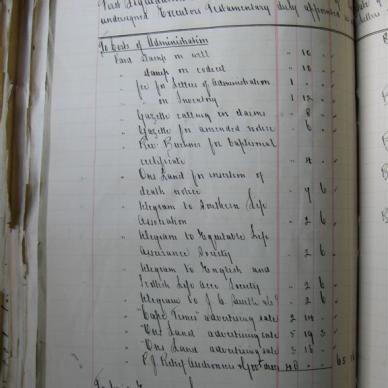 undersigned Executors Testamentary duly appointed
To Costs of Administration
Paid Stamp on will " 10 "
" Stamp on codicil " 10 "
" fee for Letters of Administration 1 " "
" " on Inventory 1 12 "
" Gazette calling in claims " 8 "
" Gazette for amended notice " 6 "
" Rev: for Baptismal
certificate " 4 "
" Ons Land for insertion of
death notice " 7 6
" telegram to Southern Life
Association " 2 6
" telegram to Equitable Life
Assurance Society " 2 6
" telegram to English and
Scottish Life Assce Society " 2 6
" telegram to J C " 2 6
" "Cape Times" advertising sale 2 14 "
" "Ons Land" advertising sale 5 19 3
" "Ons Land" advertising sale 3 16 "
" P. J. Retief Auctioneer 40 " " 65